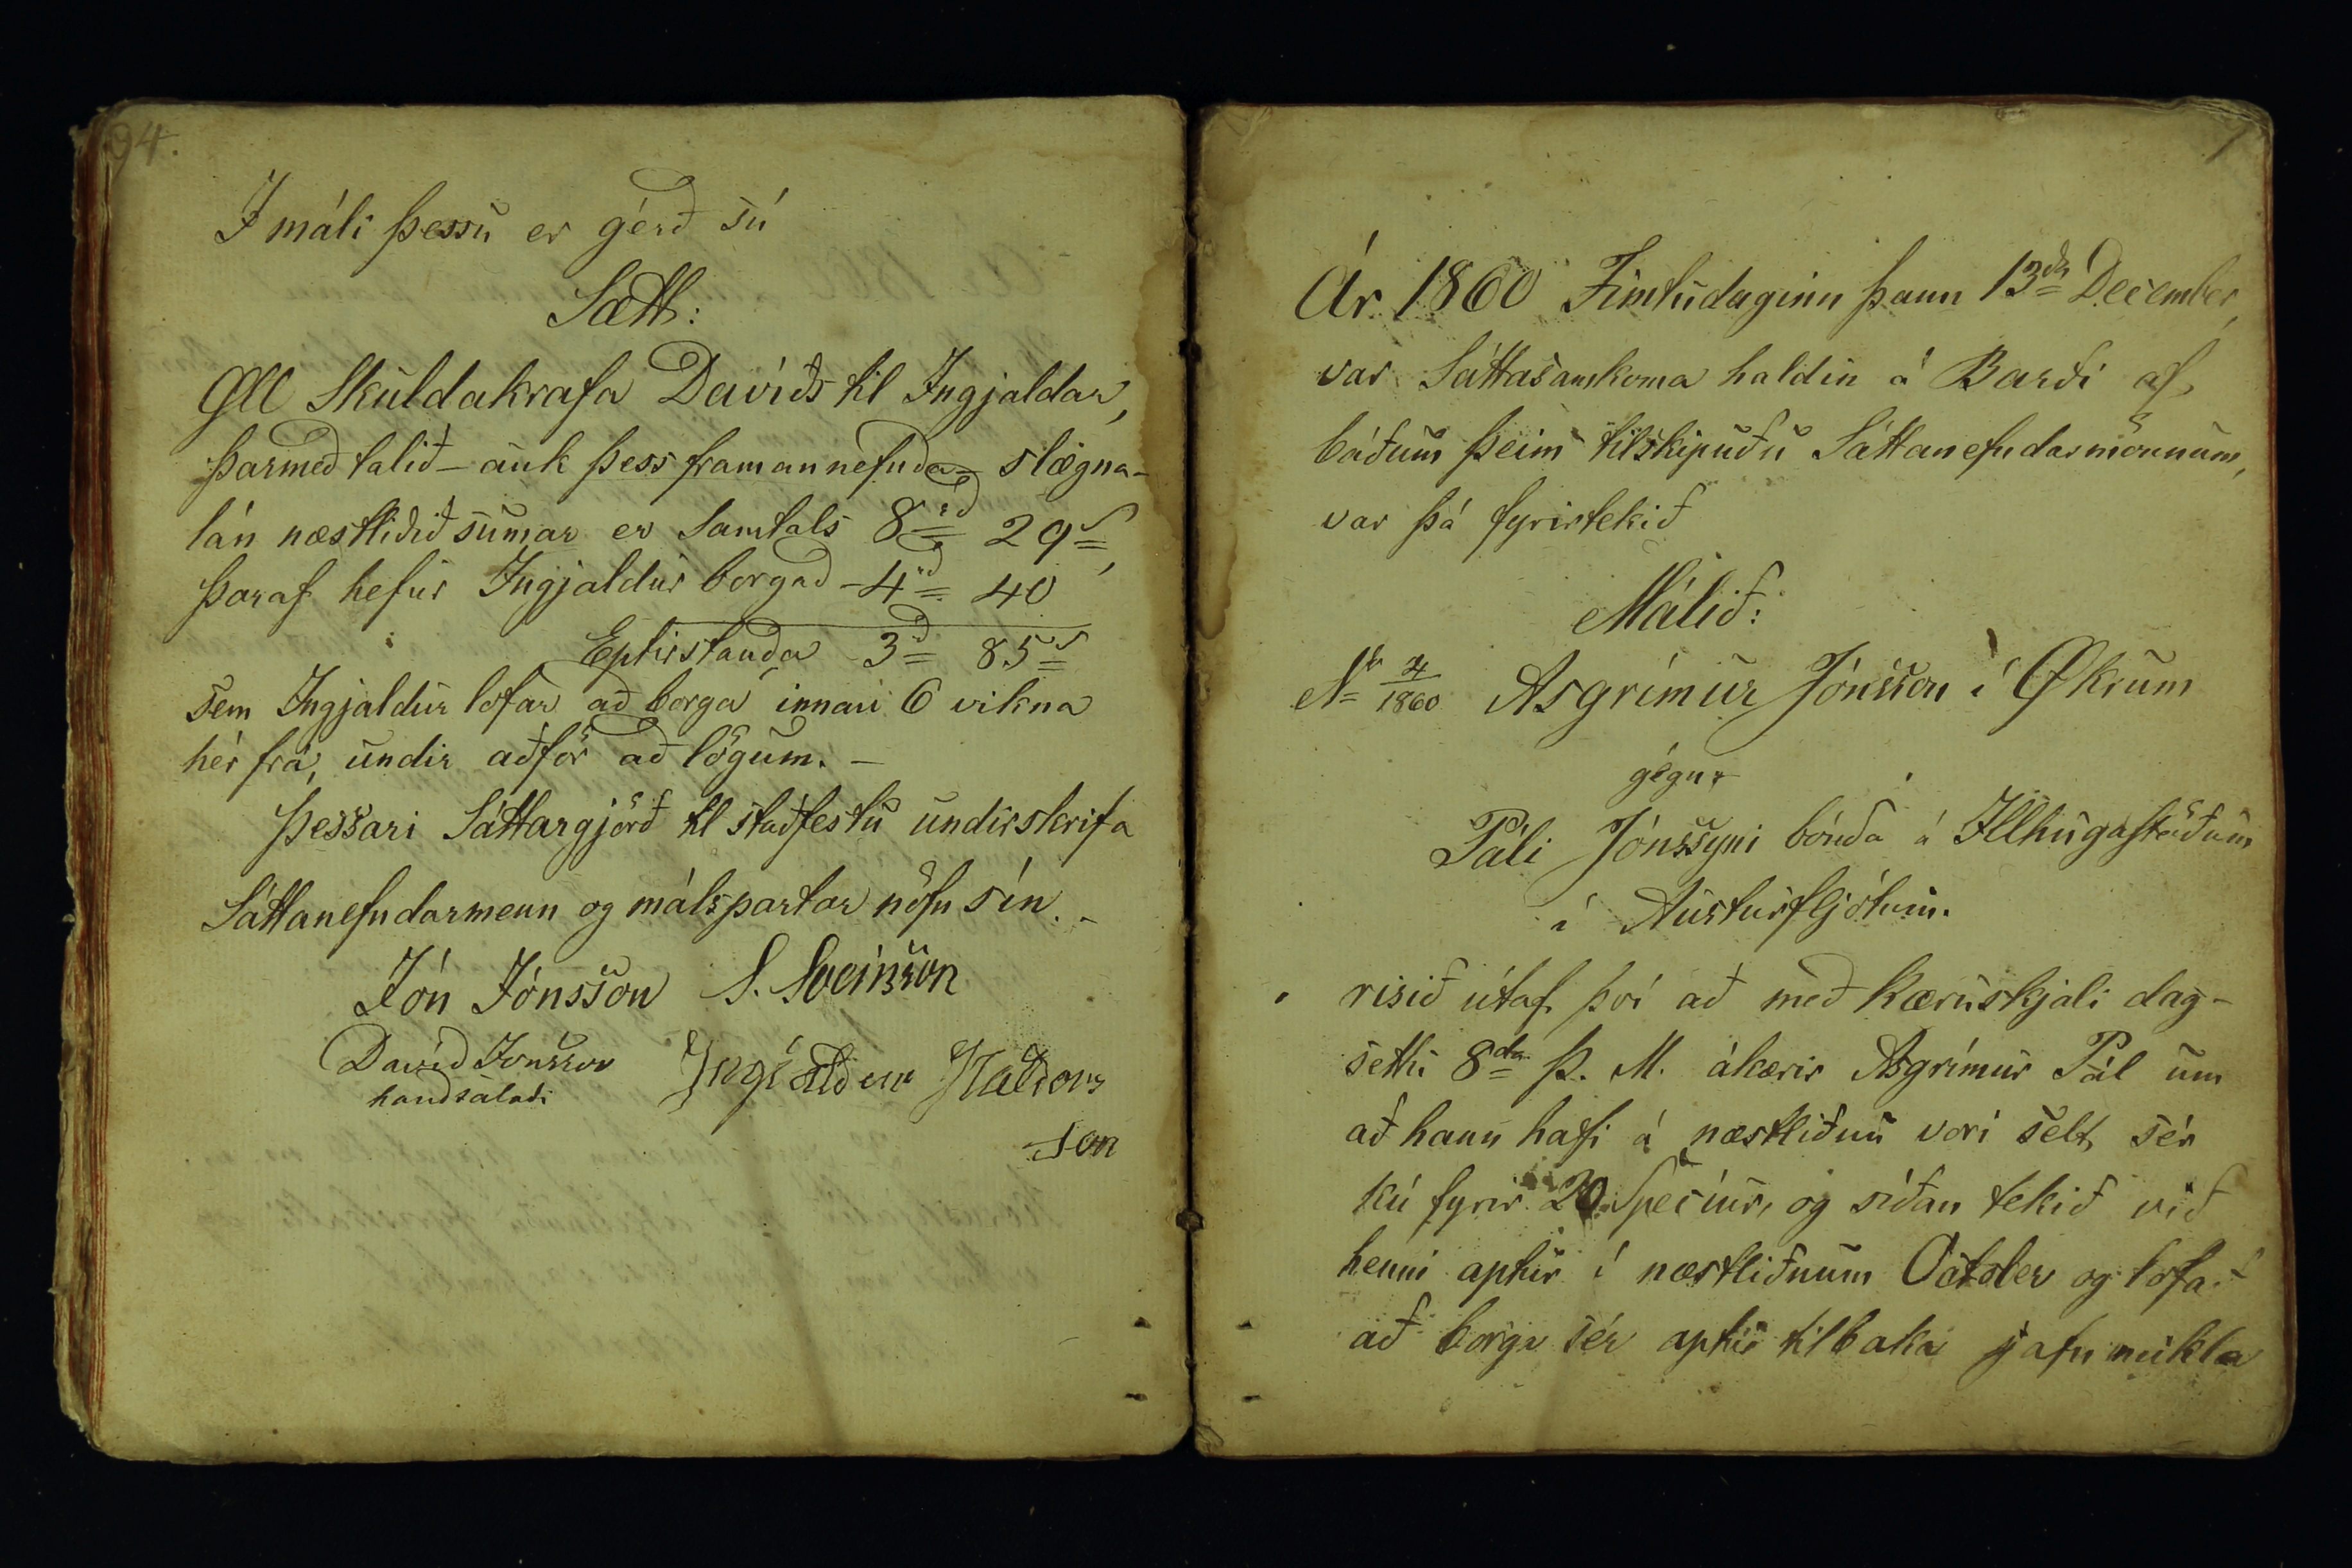 94.
I máli þessu er gérð sú
Sætt:
Øll Skuldakrafa Davíðs til Ingjaldar,
þarmeð talið – auk þess framannefnda – slægna-
lán næstliðið sumar er Samtals 8rd 29s,
þaraf hefur Ingjaldur borgað – 4rd 40
Eptirstanda 3rd 85s
sem Ingjaldur lofar að borga innan 6 vikna
hér frá, undir aðför að lögum. –
Þessari Sáttargjörð til staðfestu undirskrifa
Sáttanefndarmenn og málspartar nöfn sín. –
Jón Jónsson S. Sveinsson
Davíð Jonsson Ingialdur
handsalaði
son
Ár 1860 Fimtudaginn þann 13da December,
var Sáttasamkoma haldin á Barði af
báðum þeim tilskipuðu Sáttanefndarmönnum,
var þá fyrirtekið
Málið:
No 4/1860 Asgrímur Jónsson í Økrum
gégn
Páli Jónssyni bónda á Illhugastöðum
í Austurfljótum.
risið útaf því að með Kæruskjali dag-
settu 8da þ. M. ákærir Asgrímur Pál um
að hann hafi á næstliðnu vori selt sér
kú fyrir 20 Specíur, og síðan tekið við
henni aptur í næstliðnum October og lofað
að borga sér aptur tilbaka jafn mikla